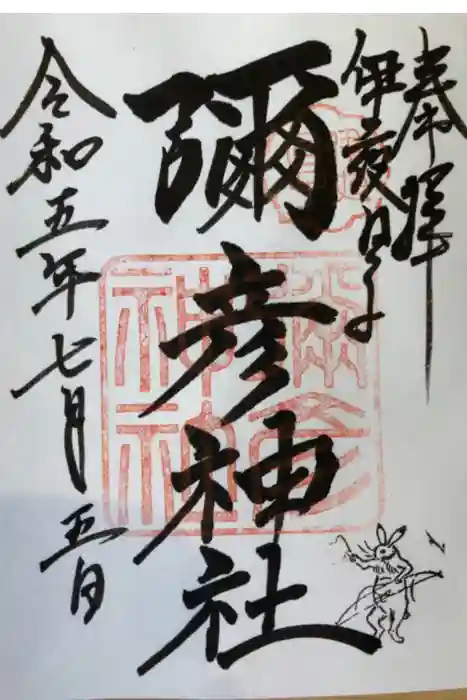 奉拝
伊夜日子
彌彦神社
令和五年七月五日
彌彦
神社